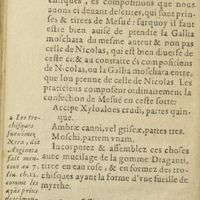 chisques, & compositions que nous
auons ci deuant descrites, qui sont prin-
ses & tirees de Mesué: surquoy il faut
estre bien aduisé de prendre la Gallia
moschata du mesme auteur & non pas
celle de Nicolas, qui est bien diuerse de
ceste ci: & au contraire és compositions
de Nicolas, ou la Gallia moschata entre,
que lon prenne de celle de Nicolas. Les
praticiens composent ordinairement la
confection de Mesué en ceste sorte:
Accipe Xyloaloes crudi, partes quin-
que.
Ambræ canni, vel griseæ, partes tres.
Moschi, partem vnam.
Incorporez & assemblez ces choses
auec mucilage de la gomme Draganti,
tirez en eau rose, & en formez des tro-
chisques ayant la forme d'vne fueille de
myrthe.
a Les tro-
chisques
surnommez
Nera, dit
Æginetia
fait men-
tion au 7.
liu. ch. 12.
comme les
ayãt prins